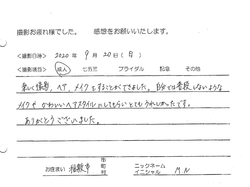 撮影お疲れ様でした。 感想をお願いいたします。
<撮影日時> 2020年 9月 20日（日）
<撮影項目> 成人 七五三 ブライダル 記念 その他
楽しく撮影、ヘア、メイクをすることができました。自分では普段しないような
メイクやかわいいヘアスタイルにしてもらいとてもうれしかったです。
ありがとうございました。
お住まい 稲敷市 市 町 村
ニックネーム イニシャル M.N